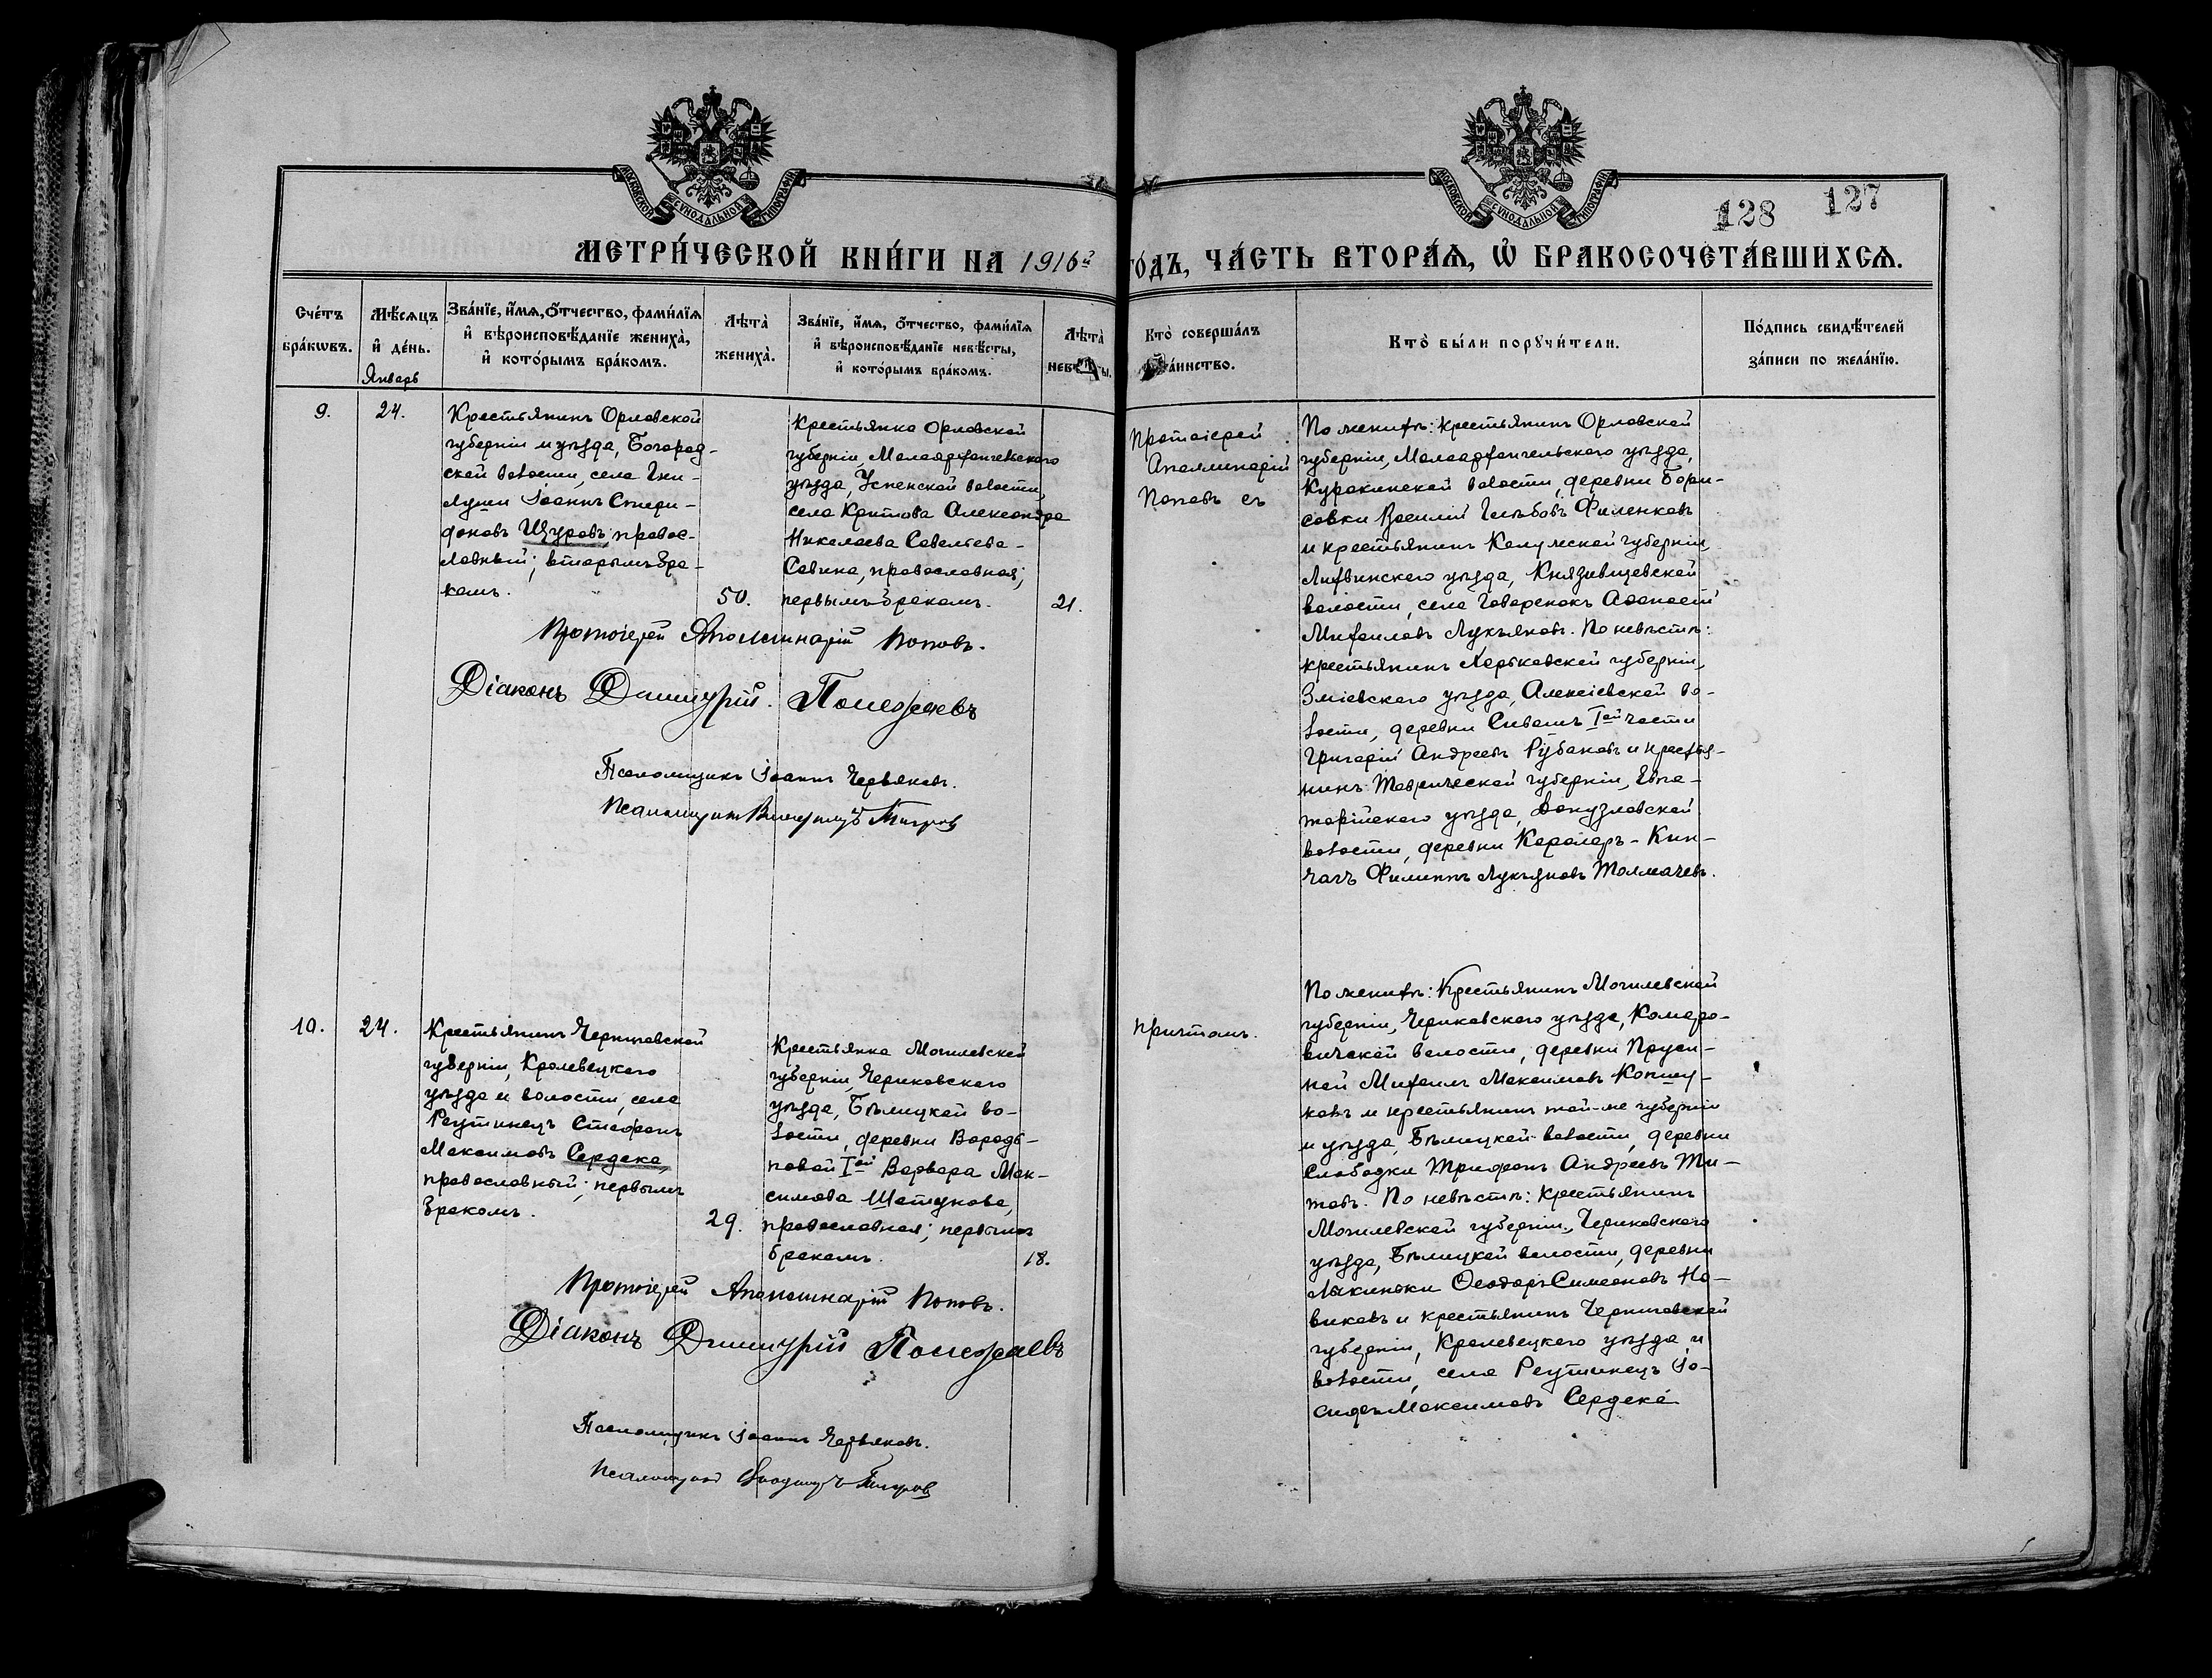 МОСКОВСКОЙ СѴНОДАЛЬНОЙ ТИПОГРАФІИ
МОСКОВСКОЙ СѴНОДАЛЬНОЙ ТИПОГРАФІИ
128 127
МЕТРИ́ЧЕСКОЙ КНИ́ГИ НА 1916й ГО́ДЪ, ЧА́СТЬ ВТОРА́Ѧ, Ѡ҆ БРАКОСОЧЕТА́ВШИХСѦ.
Сче́тъ
бра́кѡвъ.
Мѣ́сѧцъ
и҆ де́нь.
Январь
Зва́нїе, и҆́мѧ, ѻ҆́тчество, фами́лїѧ
и҆ вѣроисповѣ́данїе женихà,
и҆ кото́рымъ бра́комъ.
Лѣтà
женихà.
Зва́нїе, и҆́мѧ, ѻ҆́тчество, фами́лїѧ
и҆ вѣроисповѣ́данїе невѣ́сты,
и҆ кото́рымъ бра́комъ.
Лѣтà
невѣ́сты.
Ктò соверша́лъ
та́инство.
Ктò бы́ли порꙋчи́тели.
По́дпись свидѣ́телей
за́писи по жела́нїю.
9.
24.
Крестьянинъ Орловской
губерніи и уѣзда, Богород-
ской волости, села Гни-
луши Іоаннъ Спири-
доновъ Щуровъ, правос-
лавный; вторымъ бра-
комъ.
50.
Крестьянка Орловской
губерніи, Малоархангельскаго
уѣзда, Успенской волости,
села Критова Александра
Николаева Савельева-
Савина, православная;
первымъ бракомъ.
21.
Протоіерей
Аполлинарій
Поповъ съ
По женихѣ: крестьянинъ Орловской
губерніи, Малоархангельскаго уѣзда,
Куракинской волости, деревни Бори-
совки Василій Глѣбовъ Филенковъ
и крестьянинъ Калужской губерніи,
Лихвинскаго уѣзда, Князищевской
волости, села Говоренокъ Афанасій
Михаиловъ Лукьяновъ. По невѣстѣ:
крестьянинъ Харьковской губерніи,
Зміевскаго уѣзда, Алексіевской во-
лости, деревни Сивашъ Iой части
Григорій Андреевъ Рубановъ и крестья-
нинъ Таврической губерніи, Евпа-
торійскаго уѣзда, Донузлавской
волости, деревни Караларъ-Кип-
чагъ Филиппъ Лукьяновъ Толмачевъ.
Протоіерей Аполлинарій Поповъ.
Діаконъ Димитрій Полежаевъ
Псаломщикъ Іоаннъ Червяковъ.
Псаломщикъ
10.
24.
Крестьянинъ Черниговской
губерніи, Кролевецкаго
уѣзда и волости, села
Реутинецъ Стефанъ
Максимовъ Сердека,
православный; первымъ
бракомъ.
29.
Крестьянка Могилевской
губерніи, Чериковскаго
уѣзда, Бѣлицкой во-
лости, деревни Вородь-
новой Iой Варвара Мак-
симова Шатунова,
православная; первымъ
бракомъ.
18.
причтомъ.
По женихѣ: Крестьянинъ Могилевской
губерніи, Чериковскаго уѣзда, Комаро-
вичской волости, деревни Пруси-
ной Михаилъ Максимовъ
и крестьянинъ той-же губерніи
и уѣзда, Бѣлицкой волости, деревни
Слободки Трифонъ Андреевъ Ти-
товъ. По невѣстѣ: Крестьянинъ
Могилевской губерніи, Чериковскаго
уѣзда, Бѣлицкой волости, деревни
Лыкинки Ѳеодоръ Симеоновъ Но-
виковъ и крестьянинъ Черниговской
губерніи, Кролевецкаго уѣзда и
волости, села Реутинецъ Іо-
сифъ Максимовъ Сердека
Протоіерей Аполлинарій Поповъ.
Діаконъ Димитрій Полежаевъ
Псаломщикъ Іоаннъ Червяковъ.
Псаломщикъ